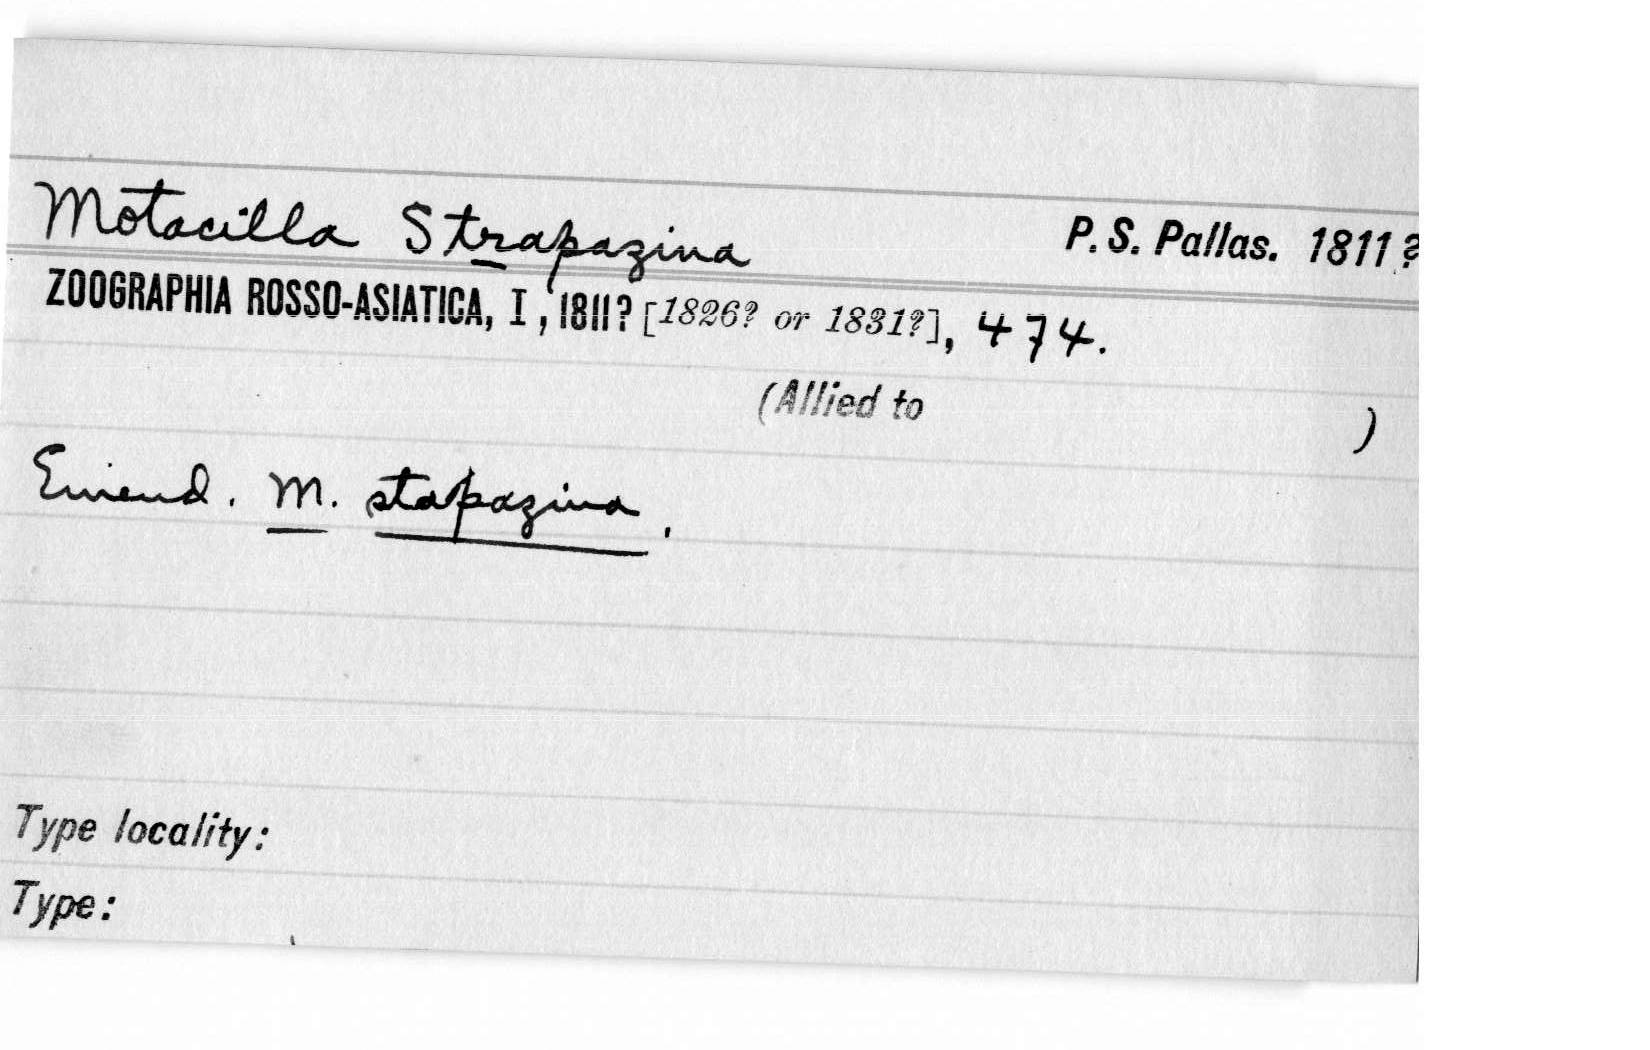 Motacilla Strapazina P. S. Pallas. 1811?
ZOOGRAPHIA ROSSO-ASIATICA, I, 1811? [1826? or 1831?], 474.
(Allied to )
Emend. M. stapazina.
Type locality:
Type: